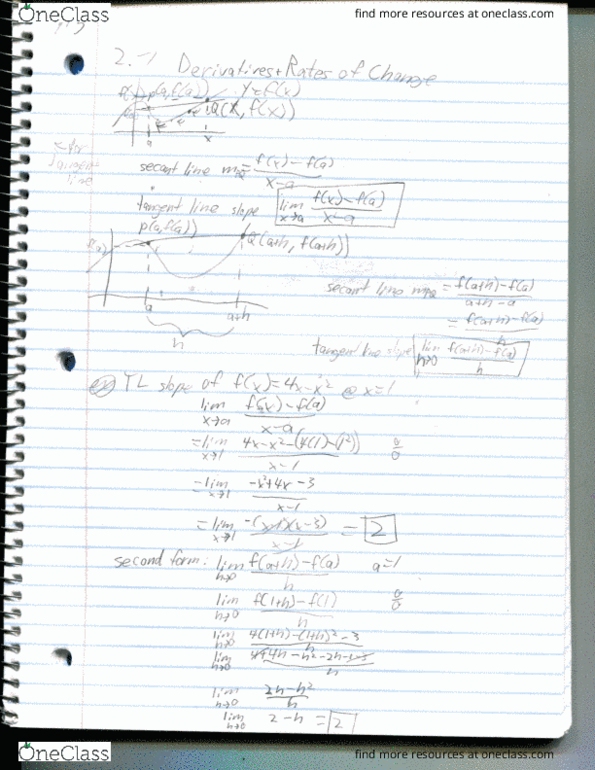 OneClass
find more resources at oneclass.com
2.1 Derivatives + Rates of Change
P(a, f(a)) y = f(x)
Q(x, f(x))
a x
secant line mPQ = f(x) - f(a) / x - a
tangent line slope lim x→a f(x) - f(a) / x - a
P(a, f(a))
f(a) Q(a+h, f(a+h))
secant line mPQ = f(a+h) - f(a) / a+h - a
= f(a+h) - f(a) / h
a a+h
h
tangent line slope lim h→0 f(a+h) - f(a) / h
ex TL slope of f(x) = 4x - x² @ x=1
lim x→a f(x) - f(a) / x - a
= lim x→1 4x - x² - (4(1) - 1²) / x - 1 0/0
= lim x→1 -x² + 4x - 3 / x - 1
= lim x→1 -(x-1)(x-3) / x - 1 = 2
second form: lim h→0 f(a+h) - f(a) / h a=1
lim h→0 f(1+h) - f(1) / h 0/0
lim h→0 4(1+h) - (1+h)² - 3 / h
lim h→0 4+4h - h² - 2h - 1 - 3 / h
lim h→0 2h - h² / h
lim h→0 2 - h = 2
OneClass
find more resources at oneclass.com